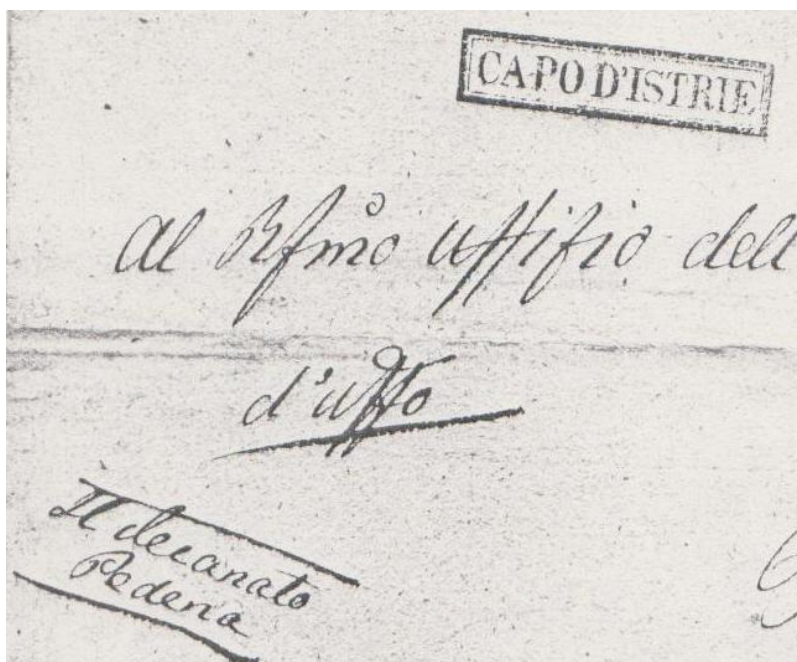 CAPO D'ISTRIE
Al Rfmo uffifio dell
d'uffo
Il decanato
Pedena